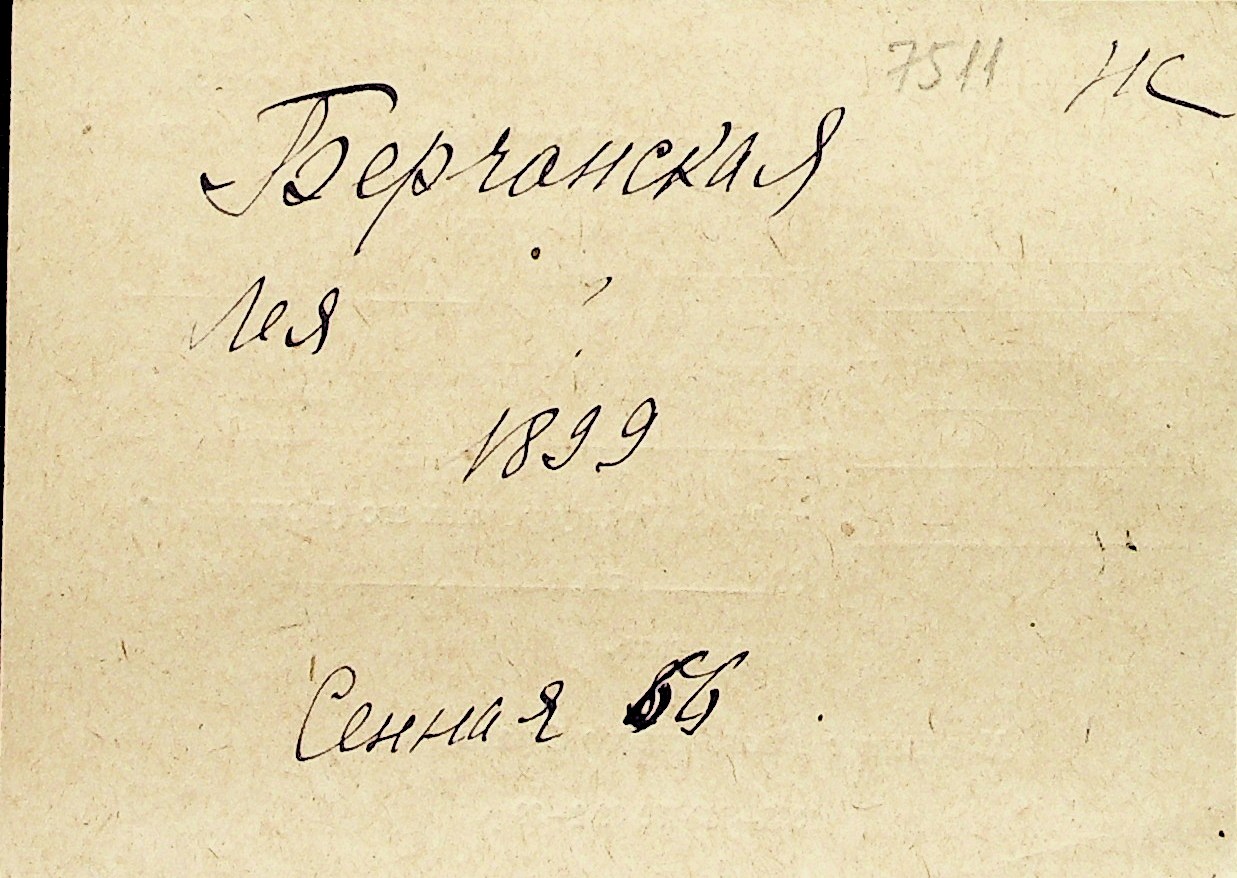 7511 НС
Берчанская
Лея
1899
Сенная